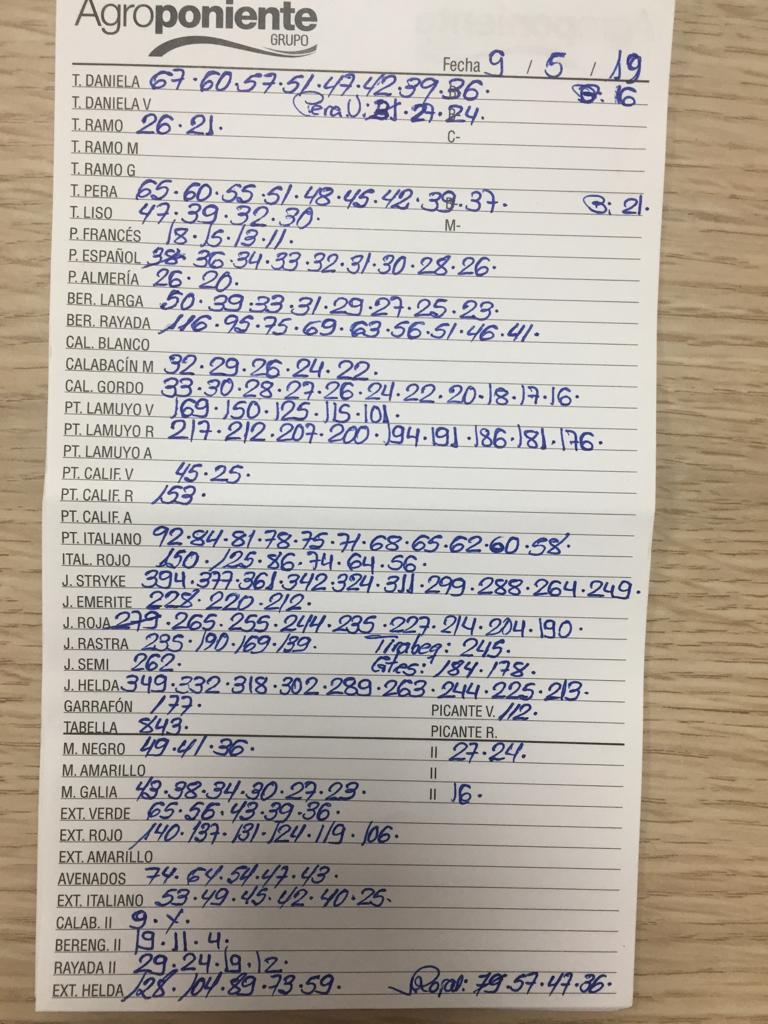 Agroponiente
GRUPO
Fecha 9 / 5 / 19
T. DANELA 67·60·57·51·47·42·39·36· B: 16
T. DANIELA V Pera V: 31·27·24·
C-
T. RAMO 26·21·
T. RAMO M
T. RAMO G
T. PERA 65·60·55·51·48·45·42·39·37· B: 21·
T. LISO 47·39·32·30· M-
P. FRANCÉS 18·15·13·11·
P. ESPAÑOL 38· 36·34·33·32·31·30·28·26·
P. ALMERÍA 26·20·
BER. LARGA 50·39·33·31·29·27·25·23·
BER. RAYADA 116·95·75·69·63·56·51·46·41·
CAL. BLANCO
CALABACÍN M 32·29·26·24·22·
CAL. GORDO 33·30·28·27·26·24·22·20·18·17·16·
PT. LAMUYO V 169·150·125·115·101·
PT. LAMUYO R 217·212·207·200·194·191·186·181·176·
PT. LAMUYO A
PT. CALIF. V 45·25·
PT. CALIF. R 153·
PT. CALIF. A
PT. ITALIANO 92·84·81·78·75·71·68·65·62·60·58·
ITAL. ROJO 150·125·86·74·64·56·
J. STRYKE 394·377·361·342·324·311·299·288·264·249·
J. EMERITE 228·220·212·
J. ROJA 279·265·255·244·235·227·214·204·190·
J. RASTRA 235·190·169·139· Tirabeq: 245·
J. SEMI 262· Gtes: 184·178·
J. HELDA 349·332·318·302·289·263·244·225·213·
GARRAFÓN 177· PICANTE V. 112·
TABELLA 843· PICANTE R.
M. NEGRO 49·41·36· II 27·24·
M. AMARILLO II
M. GALIA 43·38·34·30·27·23· II 16·
EXT. VERDE 65·56·43·39·36·
EXT. ROJO 140·137·131·124·119·106·
EXT. AMARILLO
AVENADOS 74·64·54·47·43·
EXT. ITALIANO 53·49·45·42·40·25·
CALAB. II 9·7·
BERENG. II 19·11·4·
RAYADA II 29·24·19·12·
EXT. HELDA 128·104·89·73·59· 79·57·47·36·